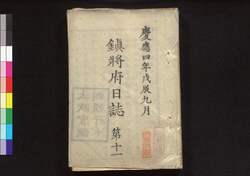 慶應四年戊辰九月
鎮將府日誌 第十一